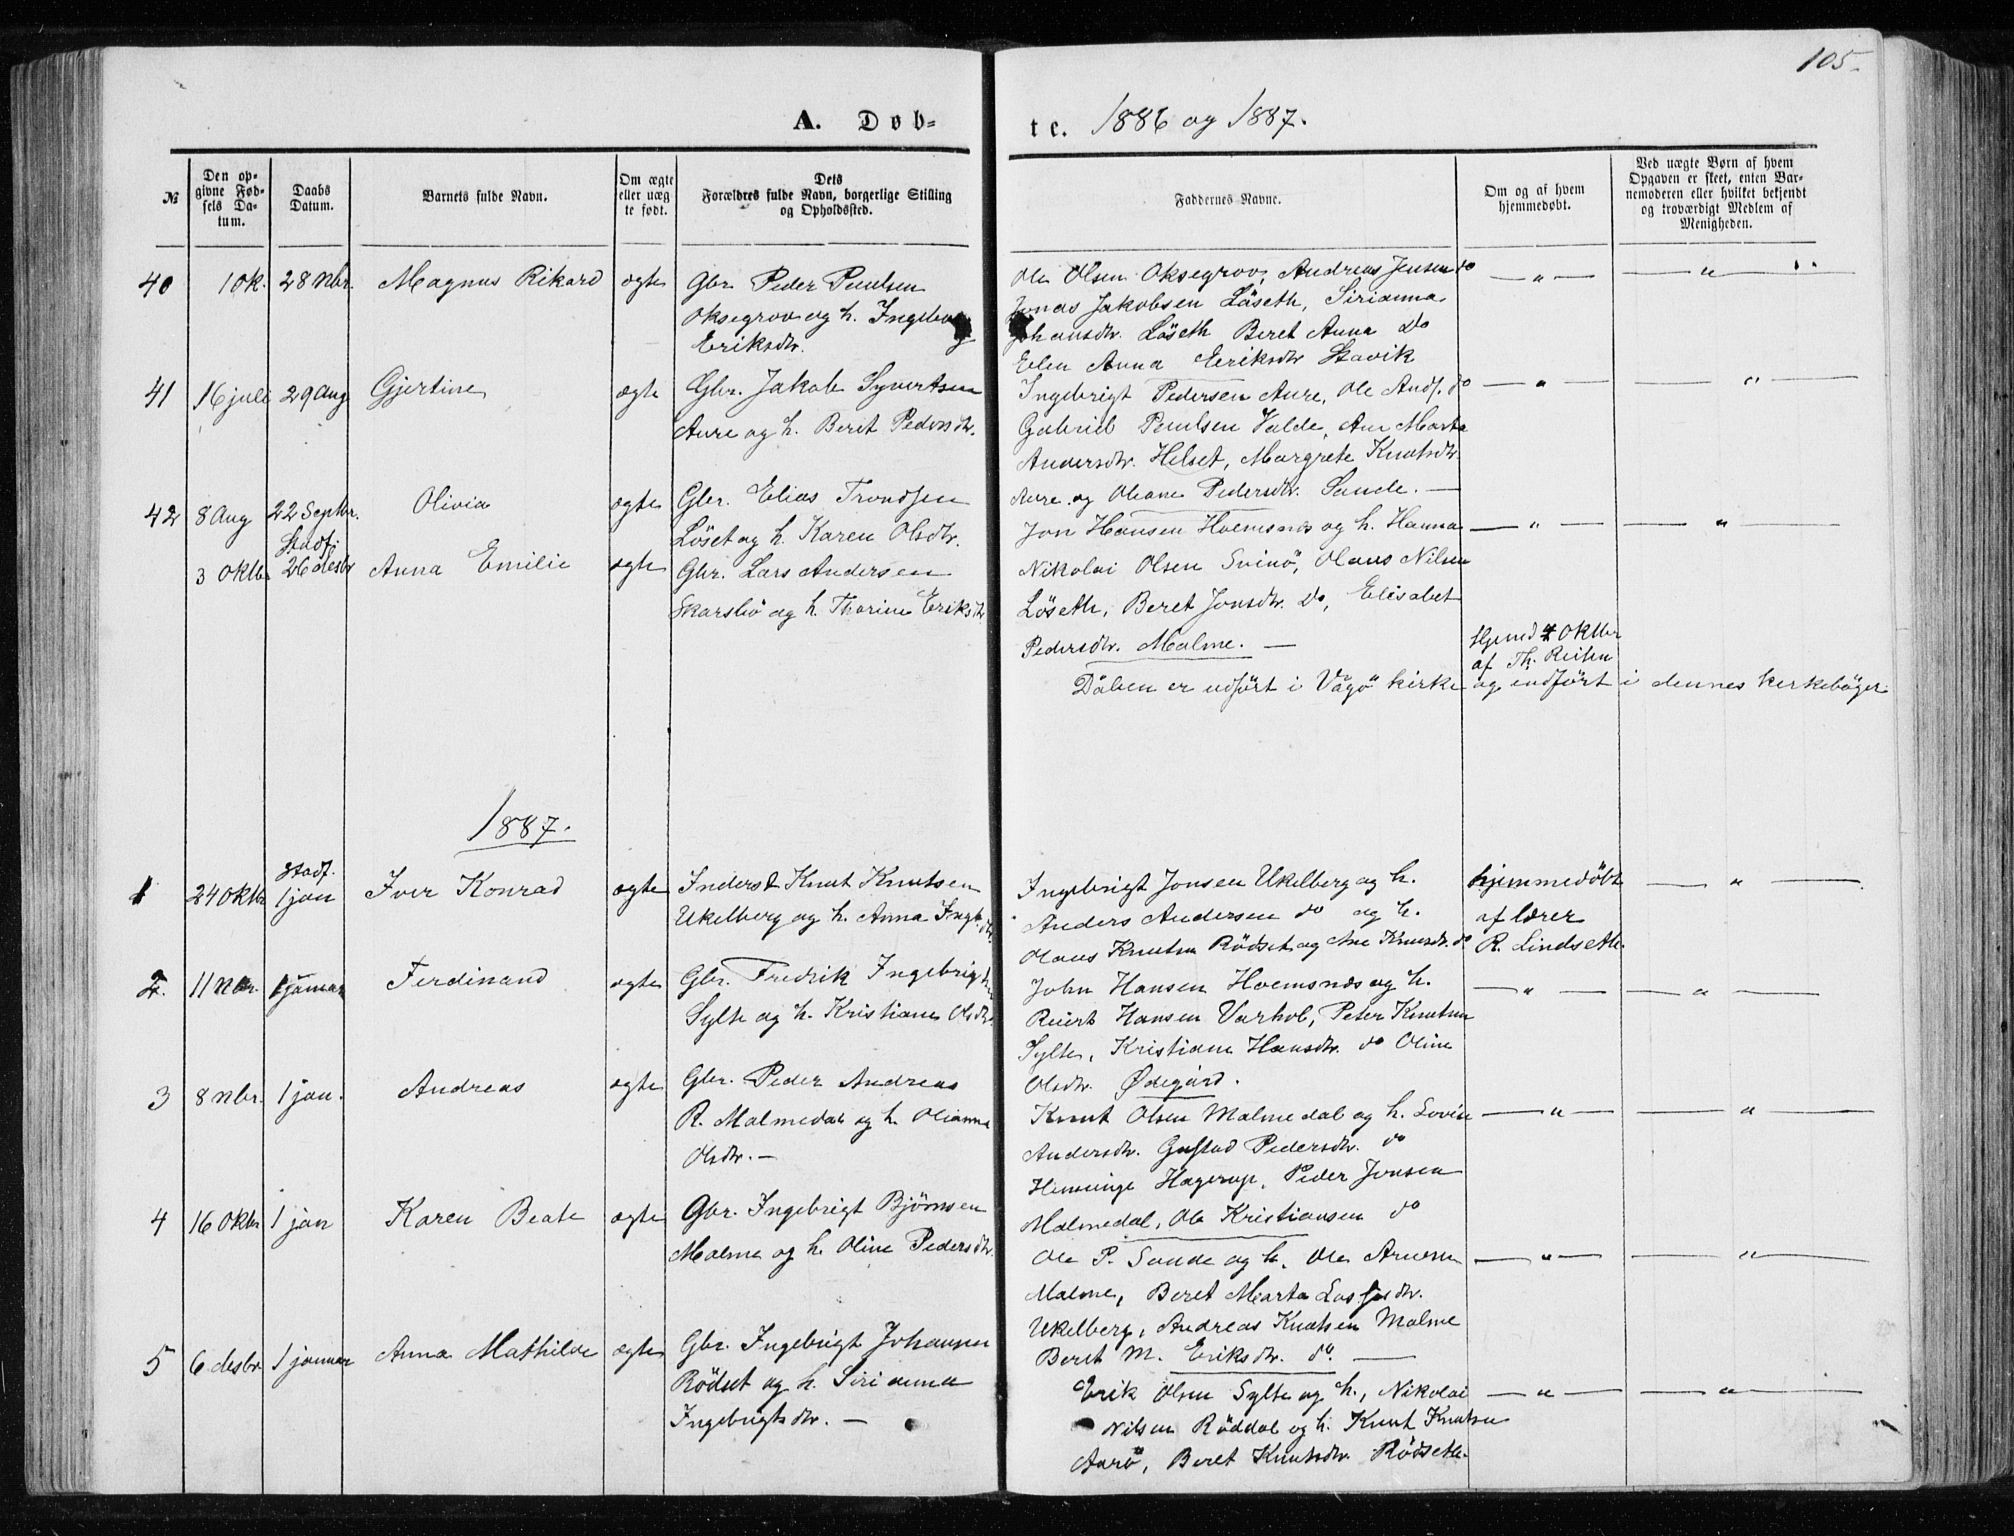 105-
A. Døb-
te. 1886 og 1887.
№
Den op-
givne Fød-
sels Da-
tum.
Daabs
Datum.
Barnets fulde Navn.
Om ægte
eller uæg
te født.
Dets
Forældres fulde Navn, borgerlige Stilling
og Opholdssted.
Faddernes Navne.
Om og af hvem
hjemmedøbt.
Ved uægte Børn af hvem
Opgaven er skeet, enten Bar-
nemoderen eller hvilket bekjendt
og troværdigt Medlem af
Menigheden.
40 10k. 28 Nbr. Magnus Rikard ægte Gbr. Peder Paulsen
Oksegrov og h. Ingeborg
Eriksdtr.
Ole Olsen Oksegrov, Andreas Jensen do — " — — " —
Jonas Jakobsen Löseth, Sirianna
Johansdtr. Löseth Beret Anna Do
Elen Anna Eriksdtr Stavik
41 16 juli 29 Aug Gjertine ægte Gbr. Jakob Syvertsen
Aure og h. Beret Pedersdtr.
Ingebrigt Pedersen Aure, Ole Andf. do — " — — " —
Gabriel Paulsen Valde, Ane Marta
Andersdtr. Helset, Margrete Knutsdtr.
Aure og Oliane Pedersdtr. Sande. —
42 8 Aug 22 Septbr. Olivia ægte Gbr. Elias Trondsen
Löset og h. Karen Olsdtr.
Jon Hansen Hoemsnes og h. Hanna — " — — " —
Nikolai Olsen Svinö, Olaus Nilsen
Löseth, Beret Jonsdtr. Do, Elisabet
Pedersdtr. Malme. —
3 Oktbr Stadf. 26 desbr Anna Emilie ægte Gbr. Lars Andersen
Skarsbö og h. Thorine Eriksdtr
Hjemd 4 Oktbr
af Th. Reiten
Dåben er udført i Vågö kirke og indført i dennes kirkebøger
1887.
1 24 Oktbr Stadf. 1 jan Iver Konrad ægte Inderst Knut Knutsen
Ukelberg og h. Anna Ingb.dtr.
Ingebrigt Jonsen Ukelberg og h.
Anders Andersen do og h.
Olaus Knutsen Rödset og Ane Knutsdtr. do
hjemmedöbt — " —
af lærer
R. Lindseth.
2. 11 Nbr. 1 januar Ferdinand ægte Gbr. Fredrik Ingebrigtsen
Sylte og h. Kristiane Olsdtr
John Hansen Hoemsnes og h. — " — — " —
Reiert Hansen Varhol, Peter Knutsen
Sylte, Kristiane Hansdtr. do Oline
Olsdtr. Ødegård.
3 8 Nbr. 1 jan. Andreas ægte Gbr. Peder Andreas
R. Malmedal og h. Olianna
Olsdtr. —
Knut Olsen Malmedal og h. Lovise — " — — " —
Andersdtr. Gustad Pedersdtr. do
Henninge Hagerup, Peder Jonsen
Malmedal, Ole Kristiansen do
4 16 Oktbr 1 jan Karen Beate ægte Gbr. Ingebrigt Bjørnsen
Malme og h. Oline Pedersdtr.
Ole P. Sande og h. Ole Arnesen — " — — " —
Malme, Beret Marta Lassesdtr.
Ukelberg, Andreas Knutsen Malme
Beret M. Eriksdtr. do. —
5 6 desbr 1 januar Anna Mathilde ægte Gbr. Ingebrigt Johannsen
Rödset og h. Sirianna
Ingebrigtsdtr. —
Erik Olsen Sylte og h., Nikolai — " — — " —
Nilsen Röddal og h. Knut Knutsen
Aarö, Beret Knutsdtr. Rödseth.